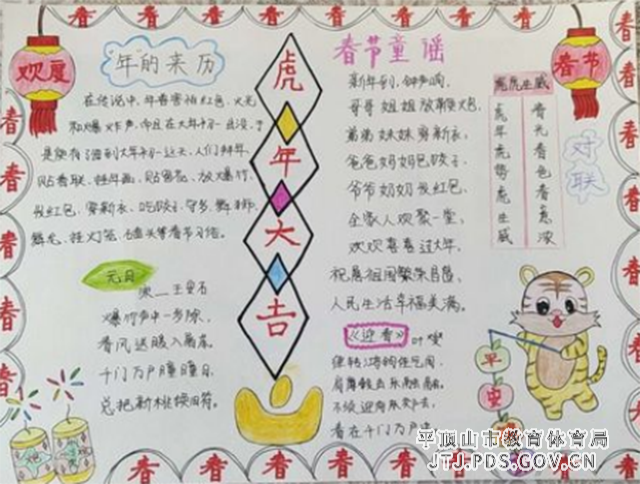 欢度
春节
"年"的来历
在传说中,年兽害怕红色、火光
和爆炸声,而且在大年初一出没,于
是每到大年初一这天,人们
贴春联、挂年画、贴窗花、放爆竹、
发红包、穿新衣、吃饺子、守岁、舞狮
舞龙、挂灯笼、磕头等春节习俗。
元日
宋 王安石
爆竹声中一岁除,
春风送暖入屠苏。
千门万户曈曈日,
总把新桃换旧符。
虎
年
大
吉
春节童谣
新年到,钟声响,
哥哥姐姐放
弟弟妹妹穿新衣,
爸爸妈妈包饺子,
爷爷奶奶发红包,
全家人欢聚一堂,
欢欢喜喜过大年,
祝愿祖国繁荣昌盛,
人民生活幸福美满。
《迎春》
叶燮
不须迎向东郊去,
春在千门万户中
虎虎生威
虎年虎势虎生威
春光春色春意浓
对联
春
平顶山市教育体育局
JTJ.PDS.GOV.CN